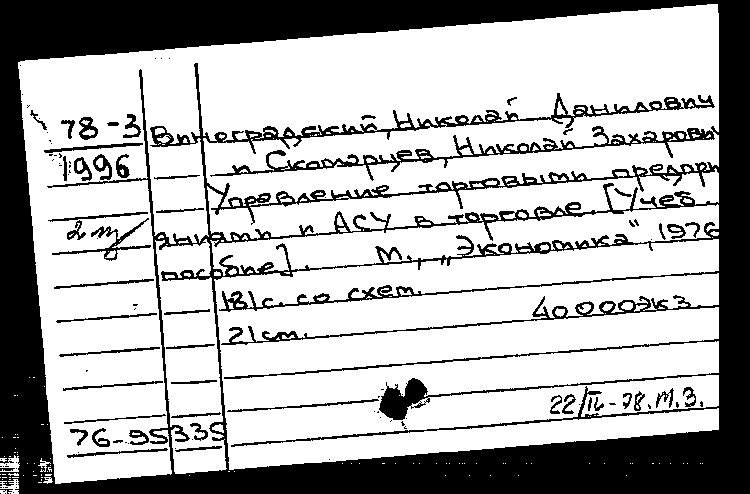 78-3
1996
2 т
Виноградский, Николай Данилович
и Скоморцев, Николай Захарович
Управление торговыми предпри
ятиями и АСУ в торговле. [Учеб.
пособие]. М., „Экономика", 1976
181с. со схем.
21см. 40000экз.
22/IV-78.М.З.
76-95335